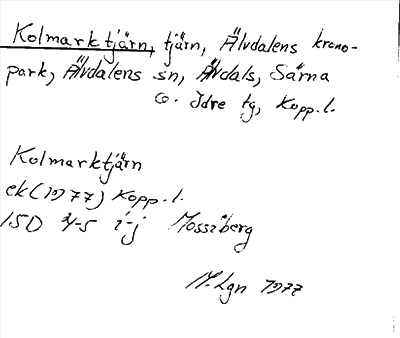 Kolmarktjärn, tjärn, Älvdalens krono-
park, Älvdalens sn, Älvdals, Särna
o. Idre tg, Kopp. l.
Kolmarktjärn
ek (1977) Kopp. l.
15D i-j Mossiberg
M. Lgn 1977